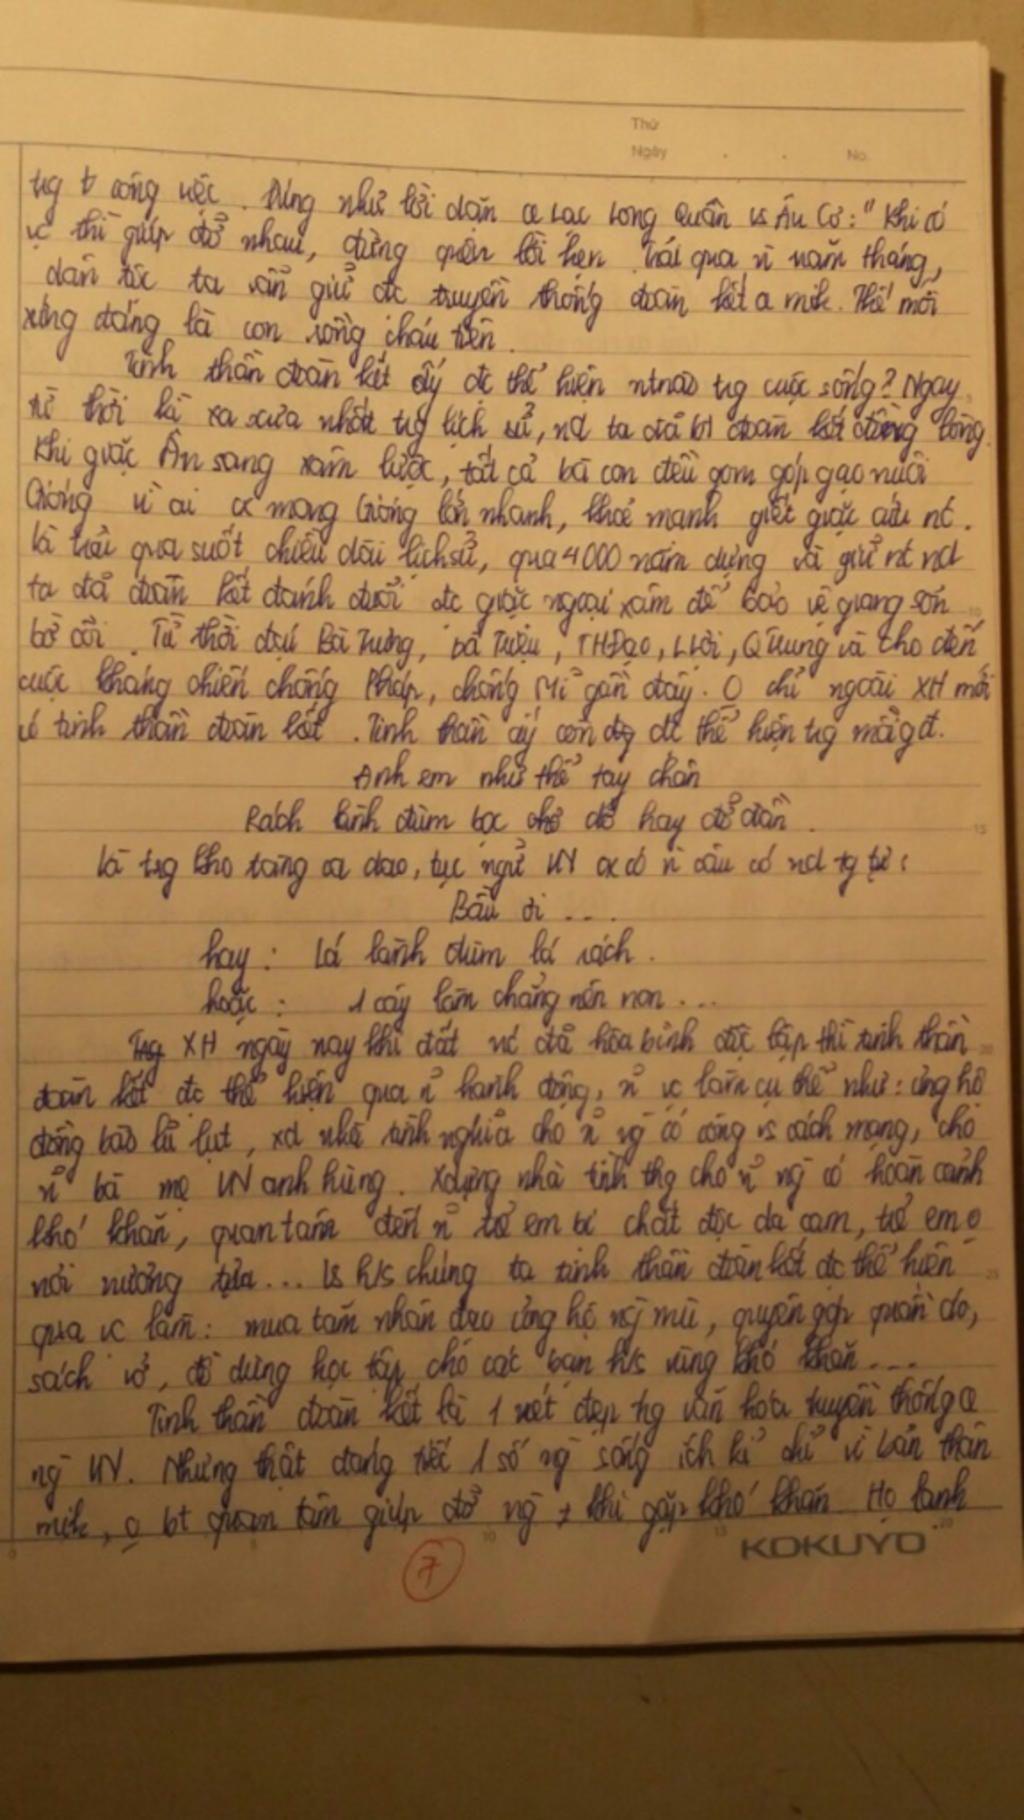 Thứ
Ngày . . No.
tng t công việc. Đúng như lời dặn c Lạc Long Quân vs Âu Cơ: "Khi có
vc thì giúp đỡ nhau, đừng quên lời hẹn. Trải qua n năm tháng,
dân tộc ta vẫn giữ đc truyền thống đoàn kết a mik. Thế mới
xứng đáng là con rồng cháu tiên.
Tinh thần đoàn kết ấy đc thể hiện ntnào tng cuộc sống? Ngay
từ thời kì xa xưa nhất tng lịch sử, nd ta đã bt đoàn kết đồng lòng.
Khi giặc Ân sang xâm lược, tất cả bà con đều gom góp gạo nuôi
Gióng vì ai cx mong Gióng lớn nhanh, khoẻ mạnh giết giặc cứu nc.
Và trải qua suốt chiều dài lịch sử, qua 4000 năm dựng và giữ nc nd
ta đã đoàn kết đánh đuổi đc giặc ngoại xâm để bảo vệ giang sơn
bờ cõi. Từ thời đại Bà Trưng, bà Triệu, THĐạo, LLợi, QTrung và cho đến
cuộc kháng chiến chống Pháp, chống Mĩ gần đây. 0 chỉ ngoài XH mới
có tinh thần đoàn kết. Tinh thần ấy còn đc thể hiện tng mỗi gđ.
Anh em như thể tay chân
Rách lành đùm bọc dở hay đỡ đần.
Và tng kho tàng ca dao, tục ngữ VN cx có n câu có nd tg tự:
Bầu ơi ...
hay: Lá lành đùm lá rách.
hoặc: 1 cây làm chẳng nên non...
Tng XH ngày nay khi đất nc đã hòa bình độc lập thì tinh thần
đoàn kết đc thể hiện qua n~ hành động, n~ vc làm cụ thể như: ủng hộ
đồng bào lũ lụt, xd nhà tình nghĩa cho n~ ng có công vs cách mạng, cho
n~ bà mẹ VN anh hùng. Xdựng nhà tình thg cho n~ ng có hoàn cảnh
khó khăn, quan tâm đến n~ trẻ em bị chất độc da cam, trẻ em 0
nơi nương tựa... Vs h/s chúng ta tinh thần đoàn kết đc thể hiện
qua vc làm: mua tăm nhân đạo ủng hộ ng mù, quyên góp quần áo,
sách vở, đồ dùng học tập cho các bạn h/s vùng khó khăn...
Tinh thần đoàn kết là 1 nét đẹp tng văn hóa truyền thống c
ng VN. Nhưng thật đáng tiếc 1 số ng sống ích kỉ chỉ vì bản thân
mik, 0 bt quan tâm giúp đỡ ng ≠ khi gặp khó khăn. Họ lạnh
7
KOKUYO